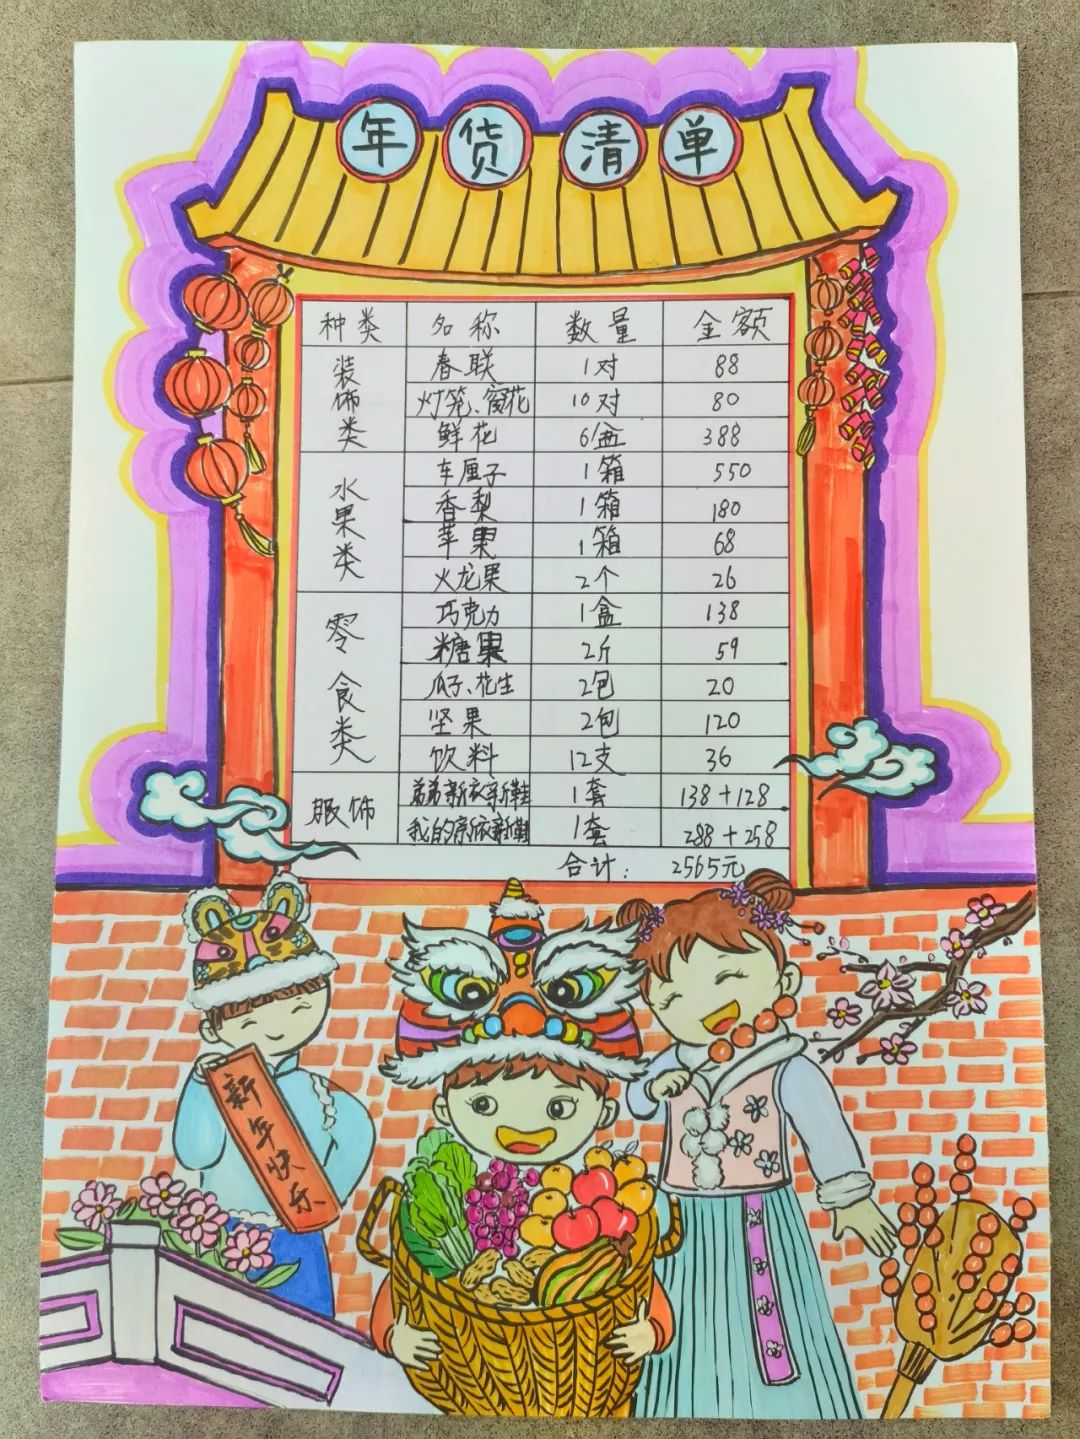 年货清单
种类 名称 数量 金额
装饰类 春联 1对 88
灯笼、窗花 10对 80
鲜花 6盆 388
水果类 车厘子 1箱 550
香梨 1箱 180
苹果 1箱 68
火龙果 2个 26
零食类 巧克力 1盒 138
糖果 2斤 59
瓜子、花生 2包 20
坚果 2包 120
饮料 12支 36
服饰 弟弟新衣新鞋 1套 138+128
我的新衣新鞋 1套 288+258
合计: 2565元
新年快乐